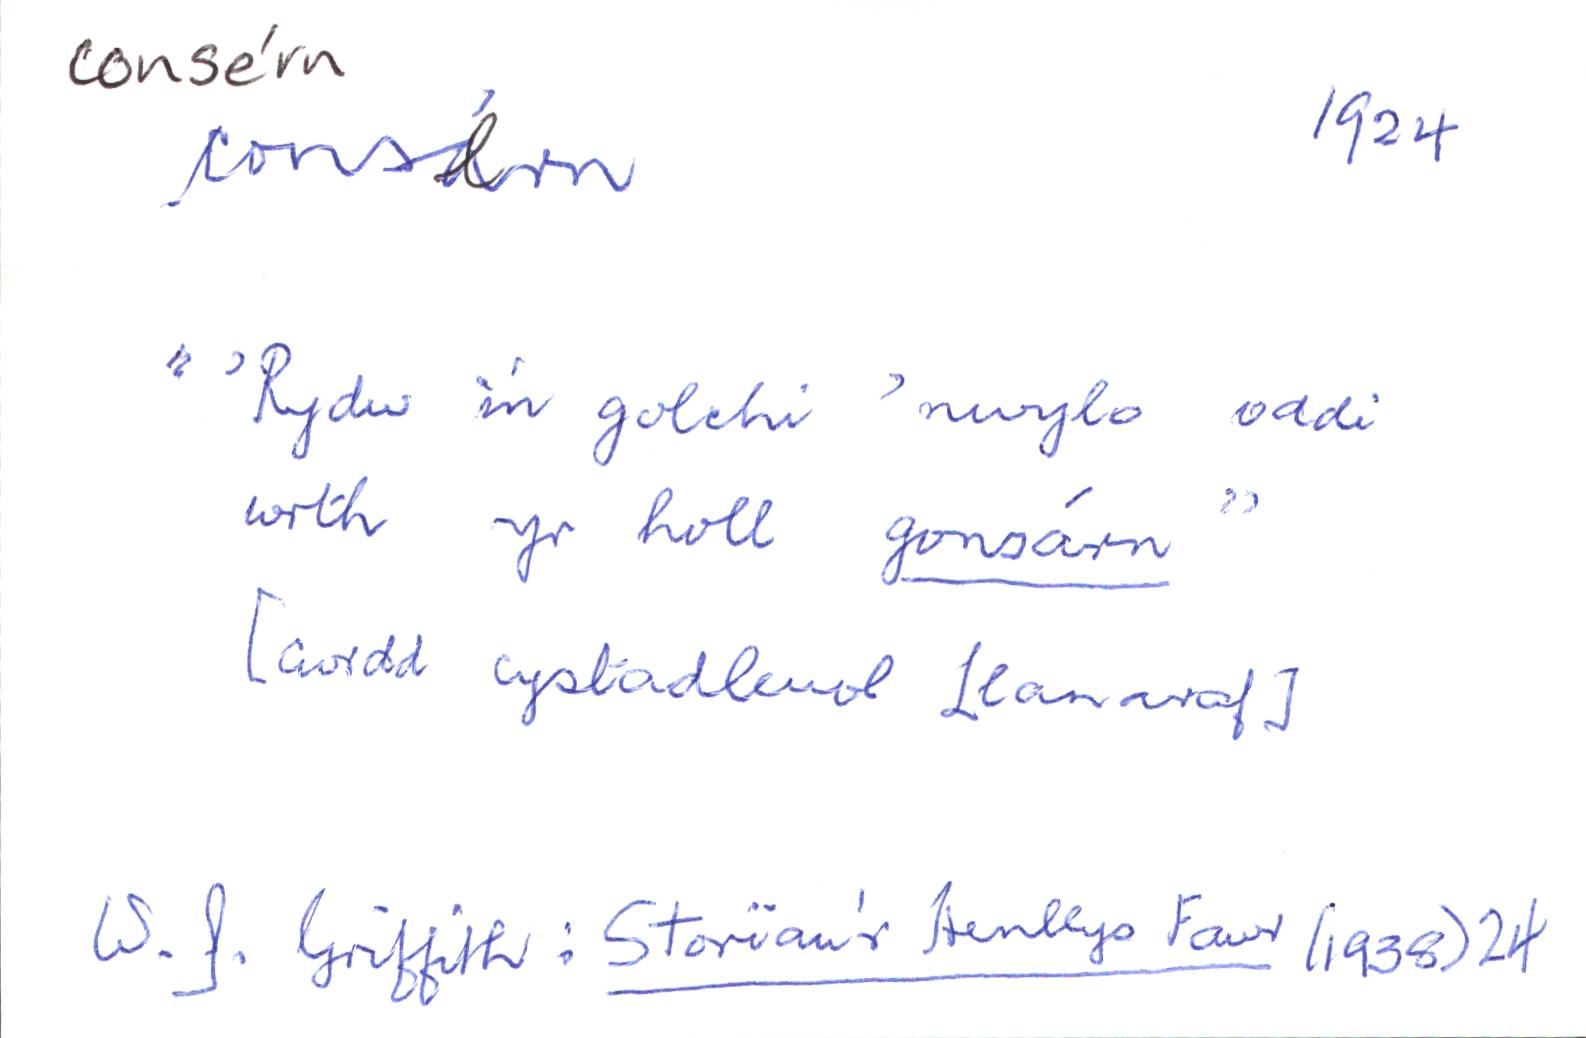 consérn
consérn 1924
"'Rydw i'n golchi 'nwylo oddi
wrth yr holl gonsárn"
[Cwrdd cystadleuol Llanaraf]
W. J. Griffith: Storïau'r Henllys Fawr (1938) 24